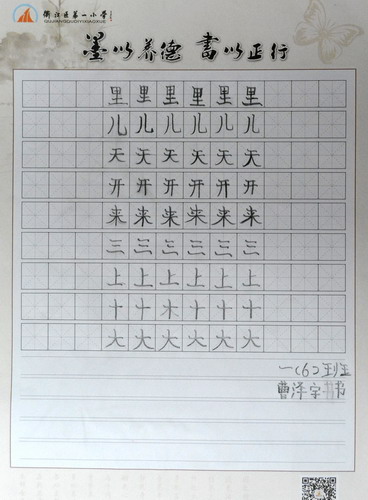 第一小学
墨以养德 書以正行
里里里里里里
儿儿儿儿儿儿
天天天天天天
开开开开开开
来来来来来来
三三三三三三
上上上上上上
十十木十十十
大大大大大大
一(6)班
曹泽宇书